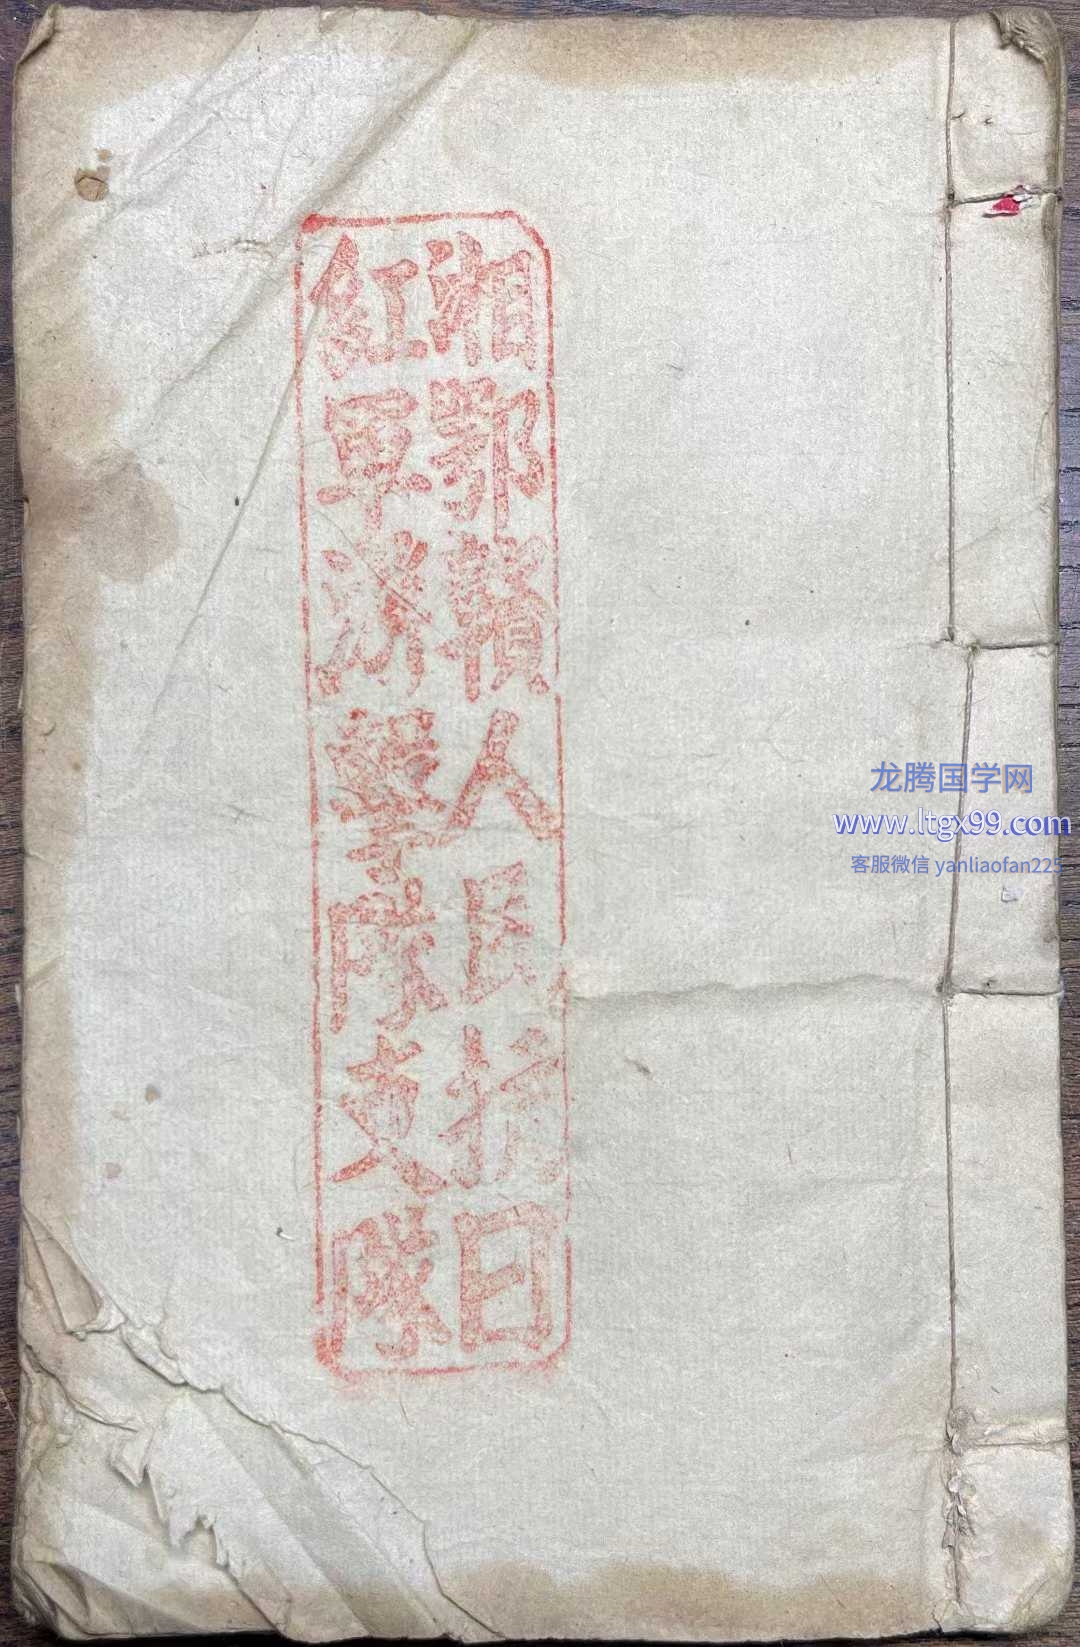 湘鄂贛人民抗日
紅軍游擊隊支隊
龙腾国学网
www.ltgx99.com
客服微信 yanliaofan225